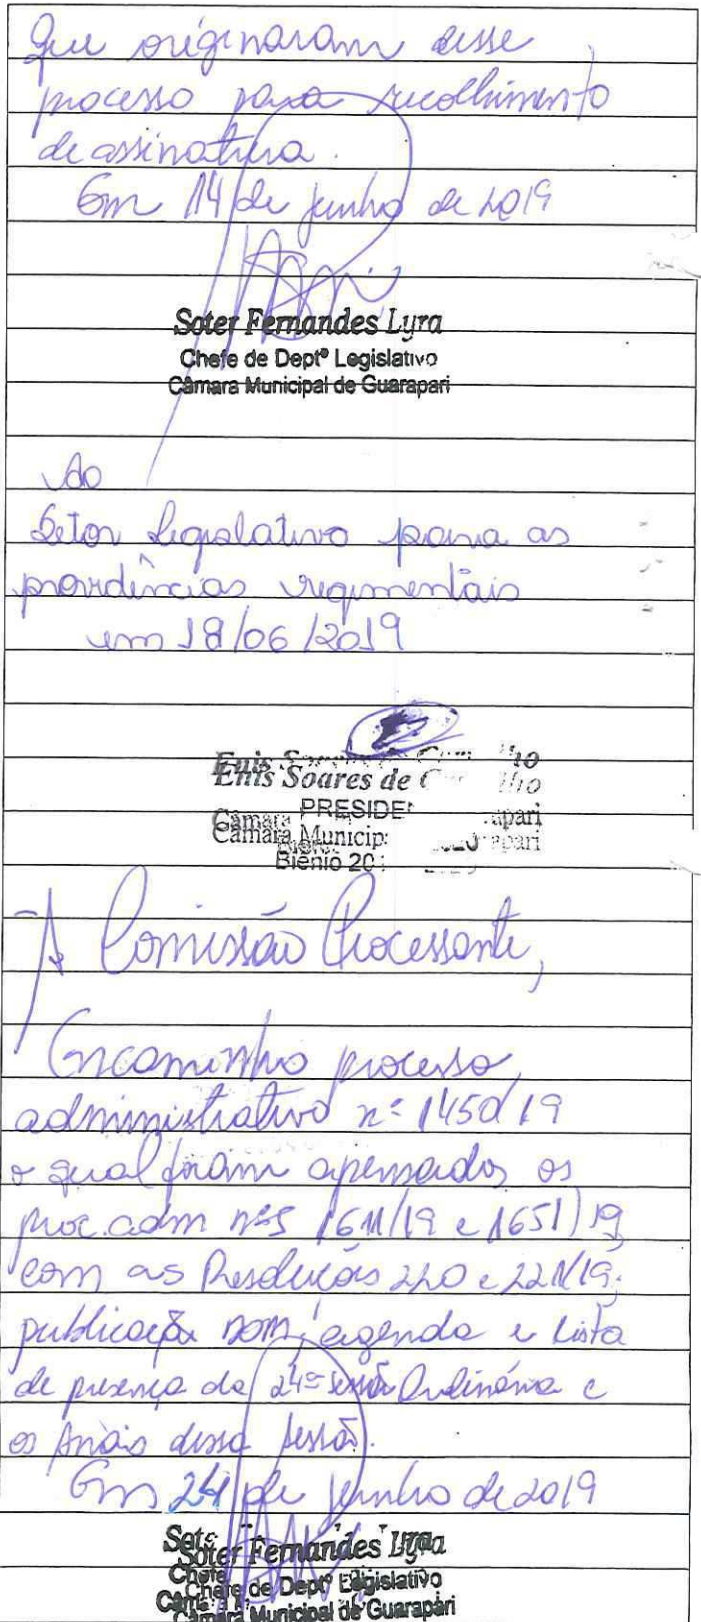 que originaram esse
processo para recolhimento
de assinatura.
Em 14 de junho de 2019
Soter Fernandes Lyra
Chefe de Deptº Legislativo
Câmara Municipal de Guarapari
Ao
Setor Legislativo para as
providências regimentais
em 18/06/2019
Enis Soares de
PRESIDE
Câmara Municip
Biênio 20
À Comissão Processante,
Encaminho processo
administrativo nº 1450/19
o qual foram apensados os
proc. adm nºs 1611/19 e 1651/19
com as Resoluções 220 e 221/19;
publicação agenda e lista
de presença da 24ª sessão Ordinária e
os Anais dessa sessão.
Em 24 de junho de 2019
Soter Fernandes Lyra
Chefe de Deptº Legislativo
Câmara Municipal de Guarapari